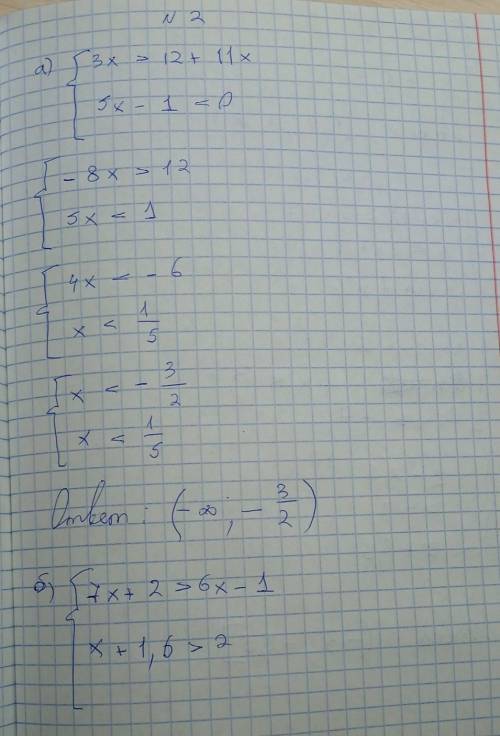 N 2
а) { 3x > 12 + 11x
5x - 1 < 0
{ -8x > 12
5x < 1
{ 4x < -6
x < 1/5
{ x < -3/2
x < 1/5
Ответ: (-∞; -3/2)
б) { 7x + 2 > 6x - 1
x + 1,6 > 2